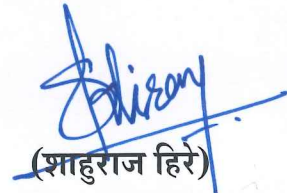 (शाहुराज हिरे)